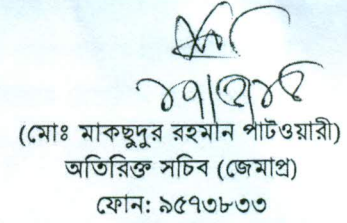 (মোঃ মাকছুদুর রহমান পাটওয়ারী)
অতিরিক্ত সচিব (জেমাপ্র)
ফোন: ৯৫৭৩৮৩৩